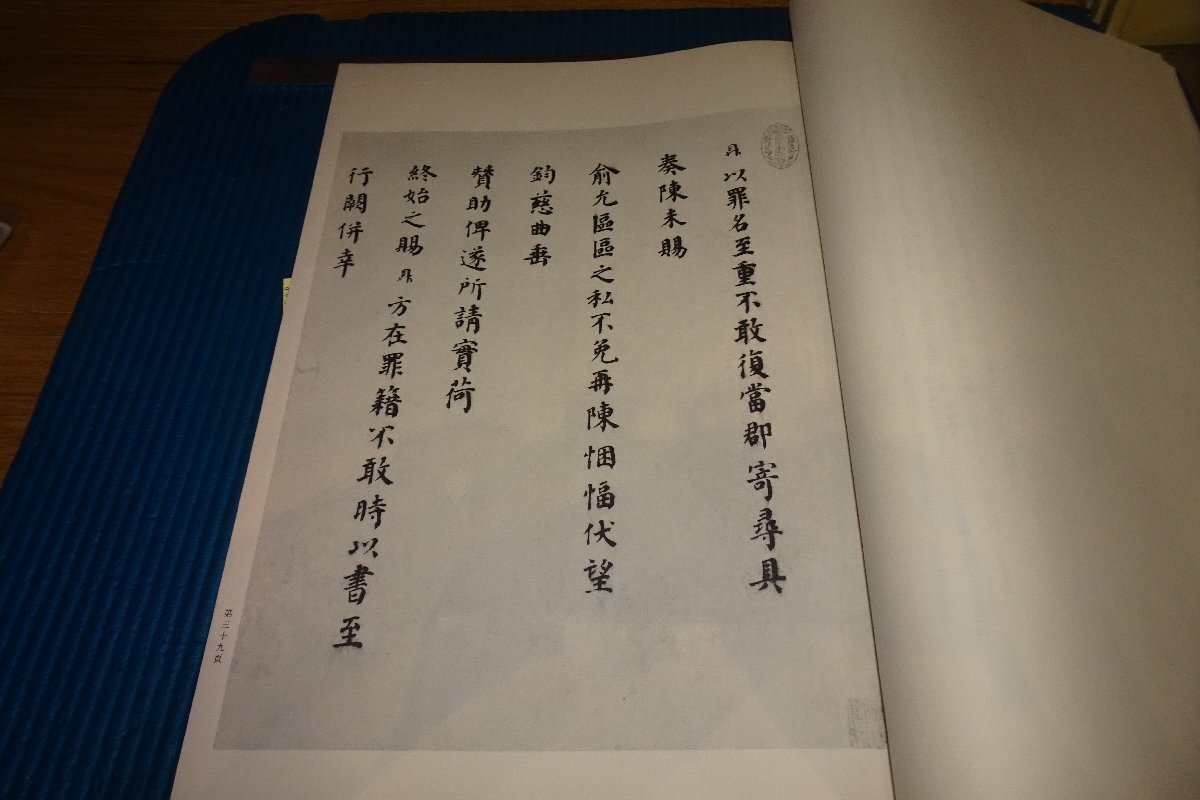 鼎以罪名至重不敢復當郡寄尋具
奏陳未賜
俞允區區之私不免再陳悃愊伏望
鈞慈曲垂
贊助俾遂所請實荷
終始之賜鼎方在罪籍不敢時以書至
行闕併幸
第三十九頁